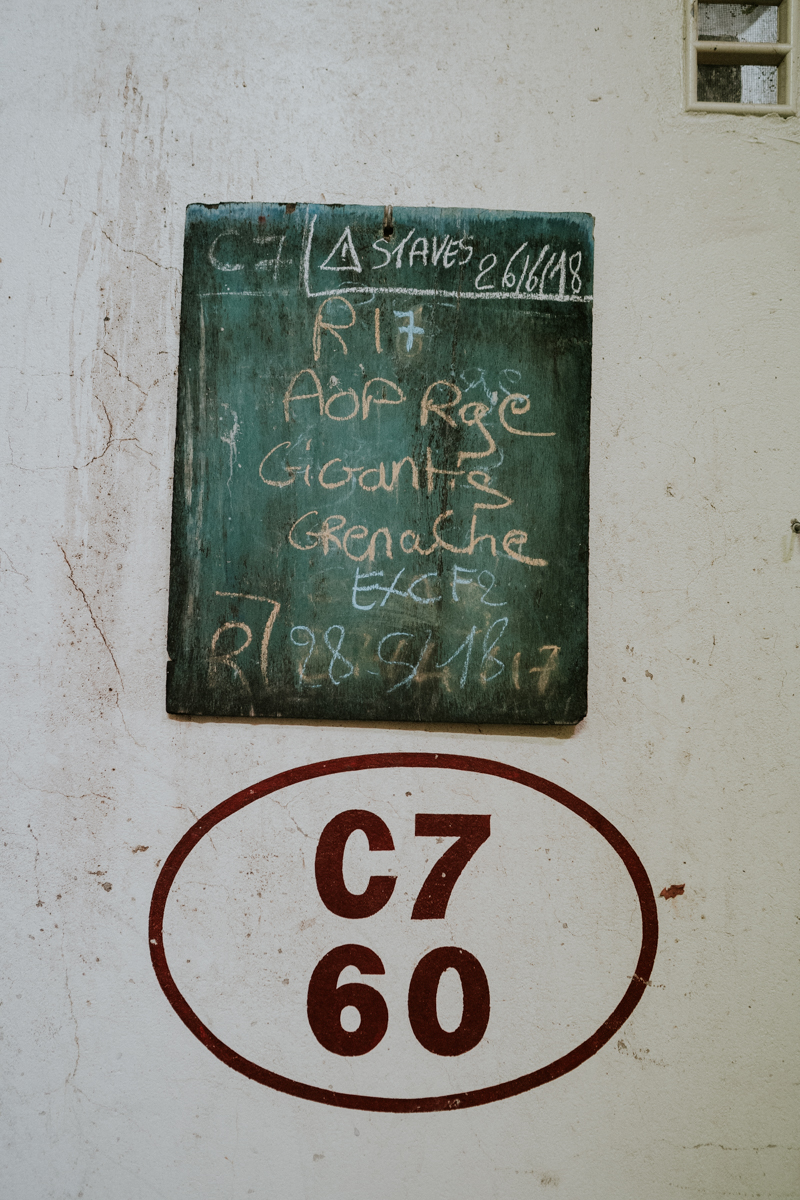 C7 ⚠ STAVES 26/6/18
R17
AOP Rge
Gigantis
GRenaChe
EXC F2
R7 28-5-18 17
C7
60